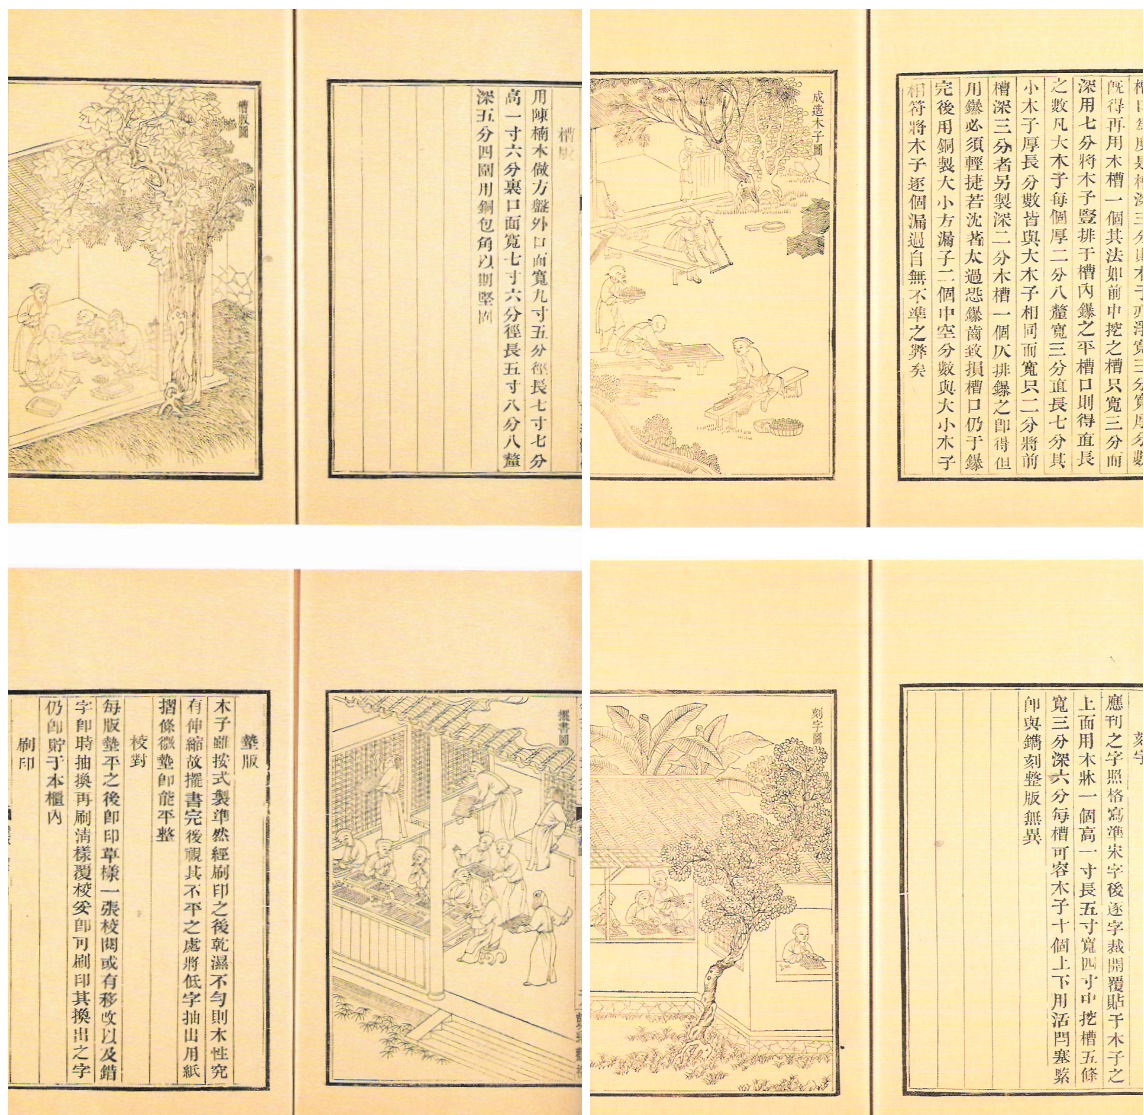 槽版圖
槽版
用陳楠木做方盤外口面寬九寸五分徑長七寸七分
高一寸六分裏口面寬七寸六分徑長五寸八分八釐
深五分四圍用銅包角以期堅固
成造木子圖
旣得再用木槽一個其法如前中挖之槽只寬三分而
深用七分將木子豎排于槽內鑤之平槽口則得直長
之數凡大木子每個厚二分八釐寬三分直長七分其
小木子厚長分數皆與大木子相同而寬只二分將前
槽深三分者另製深二分木槽一個仄排鑤之卽得但
用鑤必須輕捷若沈著太過恐鑤齒致損槽口仍于鑤
完後用銅製大小方漏子二個中空分數與大小木子
相符將木子逐個漏過自無不準之弊矣
墊版
木子雖按式製準然經刷印之後乾濕不勻則木性究
有伸縮故擺書完後視其不平之處將低字抽出用紙
摺條微墊卽能平整
校對
每版墊平之後卽印草樣一張校閱或有移改以及錯
字卽時抽換再刷淸樣覆校妥卽可刷印其換出之字
仍卽貯于本櫃內
刷印
擺書圖
刻字圖
刻字
應刊之字照格寫準宋字後逐字裁開覆貼于木子之
上面用木牀一個高一寸長五寸寬四寸中挖槽五條
寬三分深六分每槽可容木子十個上下用活閂塞緊
卽與鐫刻整版無異